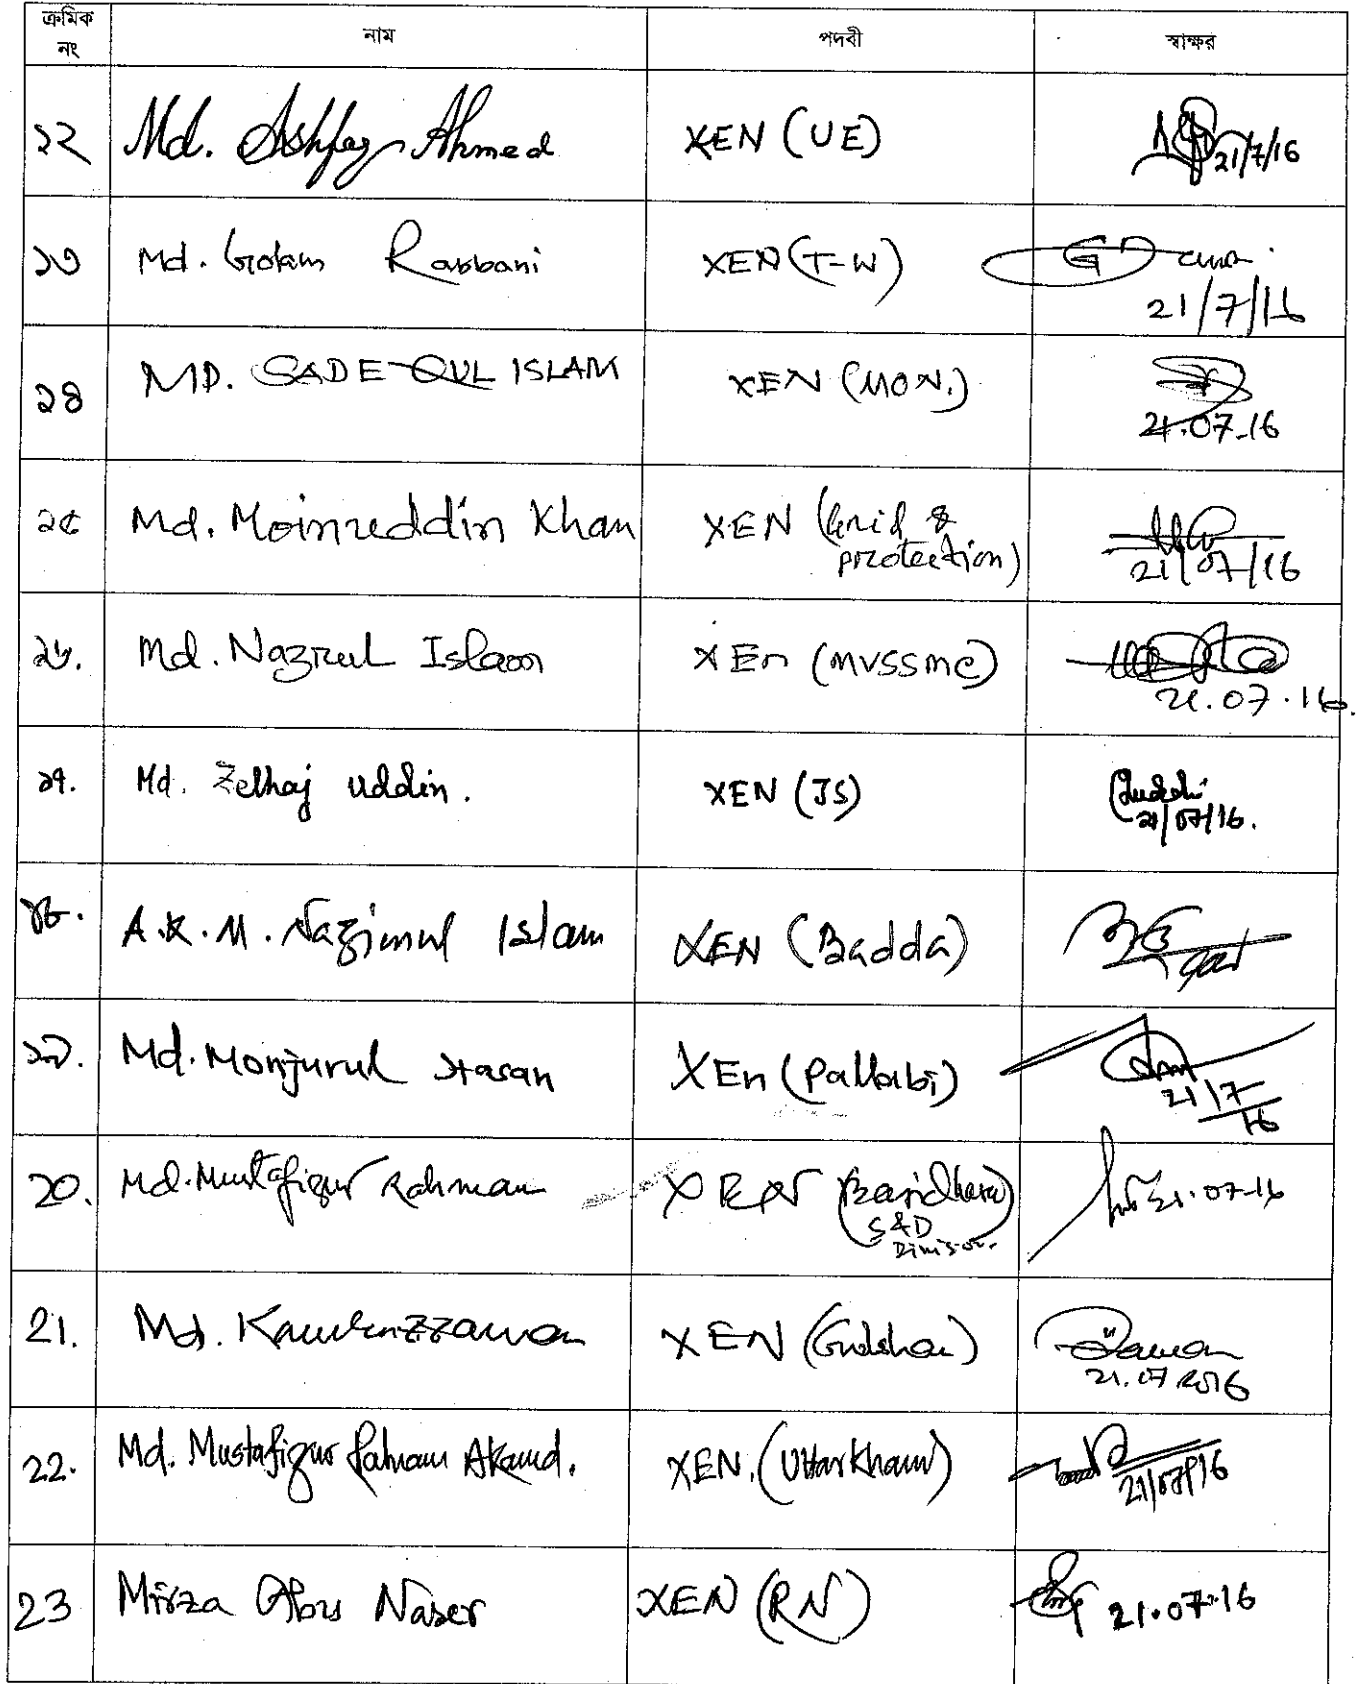 ক্রমিক নং নাম পদবী স্বাক্ষর
১২ Md. Ashfaq Ahmed XEN (UE) 21/7/16
১৩ Md. Golam Rabbani XEN (T-W) 21/7/16
১৪ MD. SADEQUL ISLAM XEN (MON.) 21.07.16
১৫ Md. Moinuddin Khan XEN (Grid & protection) 21/07/16
১৬. Md. Nazrul Islam XEn (MVSSMC) 21.07.16.
১৭. Md. Zelhaj uddin. XEN (JS) 21/07/16.
১৮. A.K.M. Nazimul Islam XEN (Badda)
১৯. Md. Monjurul Hasan XEn (Pallabi) 21/7/16
20. Md. Mustafizur Rahman XEN (Baridhara S&D Division. 21.07-16
21. Md. Kamruzzaman XEN (Gulshan) Zaman 21.07.2016
22. Md. Mustafizur Rahman Akand. XEN. (Uttarkhan) 21/07/16
23 Mirza Abu Naser XEN (RN) 21.07.16